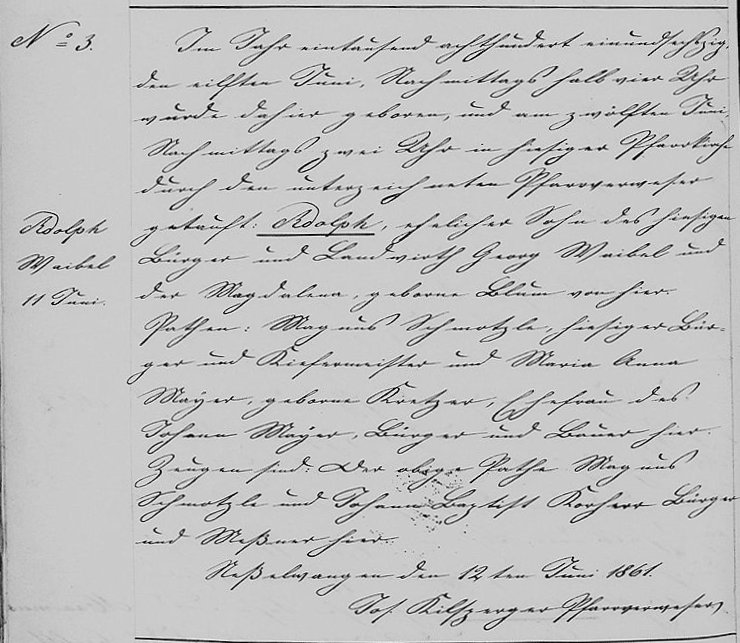 No 3.
Im Jahr eintausend achthundert einundsechszig,
den eilften Juni, Nachmittags halb vier Uhr
wurde dahier geboren, und am zwölften Juni,
Nachmittags zwei Uhr in hiesiger Pfarrkirche
durch den unterzeichneten Pfarrverweser
Adolph
Waibel
11 Juni.
getauft: Adolph, ehelicher Sohn des hiesigen
Bürger und Landwirth Georg Waibel und
der Magdalena, geborne Blum von hier.
Pathen: Magnus Schmotzle, hiesiger Bür-
ger und Kiefermeister und Maria Anna
Mayer, geborne Kretzer, Ehefrau des
Johann Mayer, Bürger und Bauer hier.
Zeugen sind: Der obige Pathe Magnus
Schmotzle und Johann Baptist Korherr Bürger
und Meßner hier.
Neßelwangen den 12ten Juni 1861.
Jos. Pfarrverweser